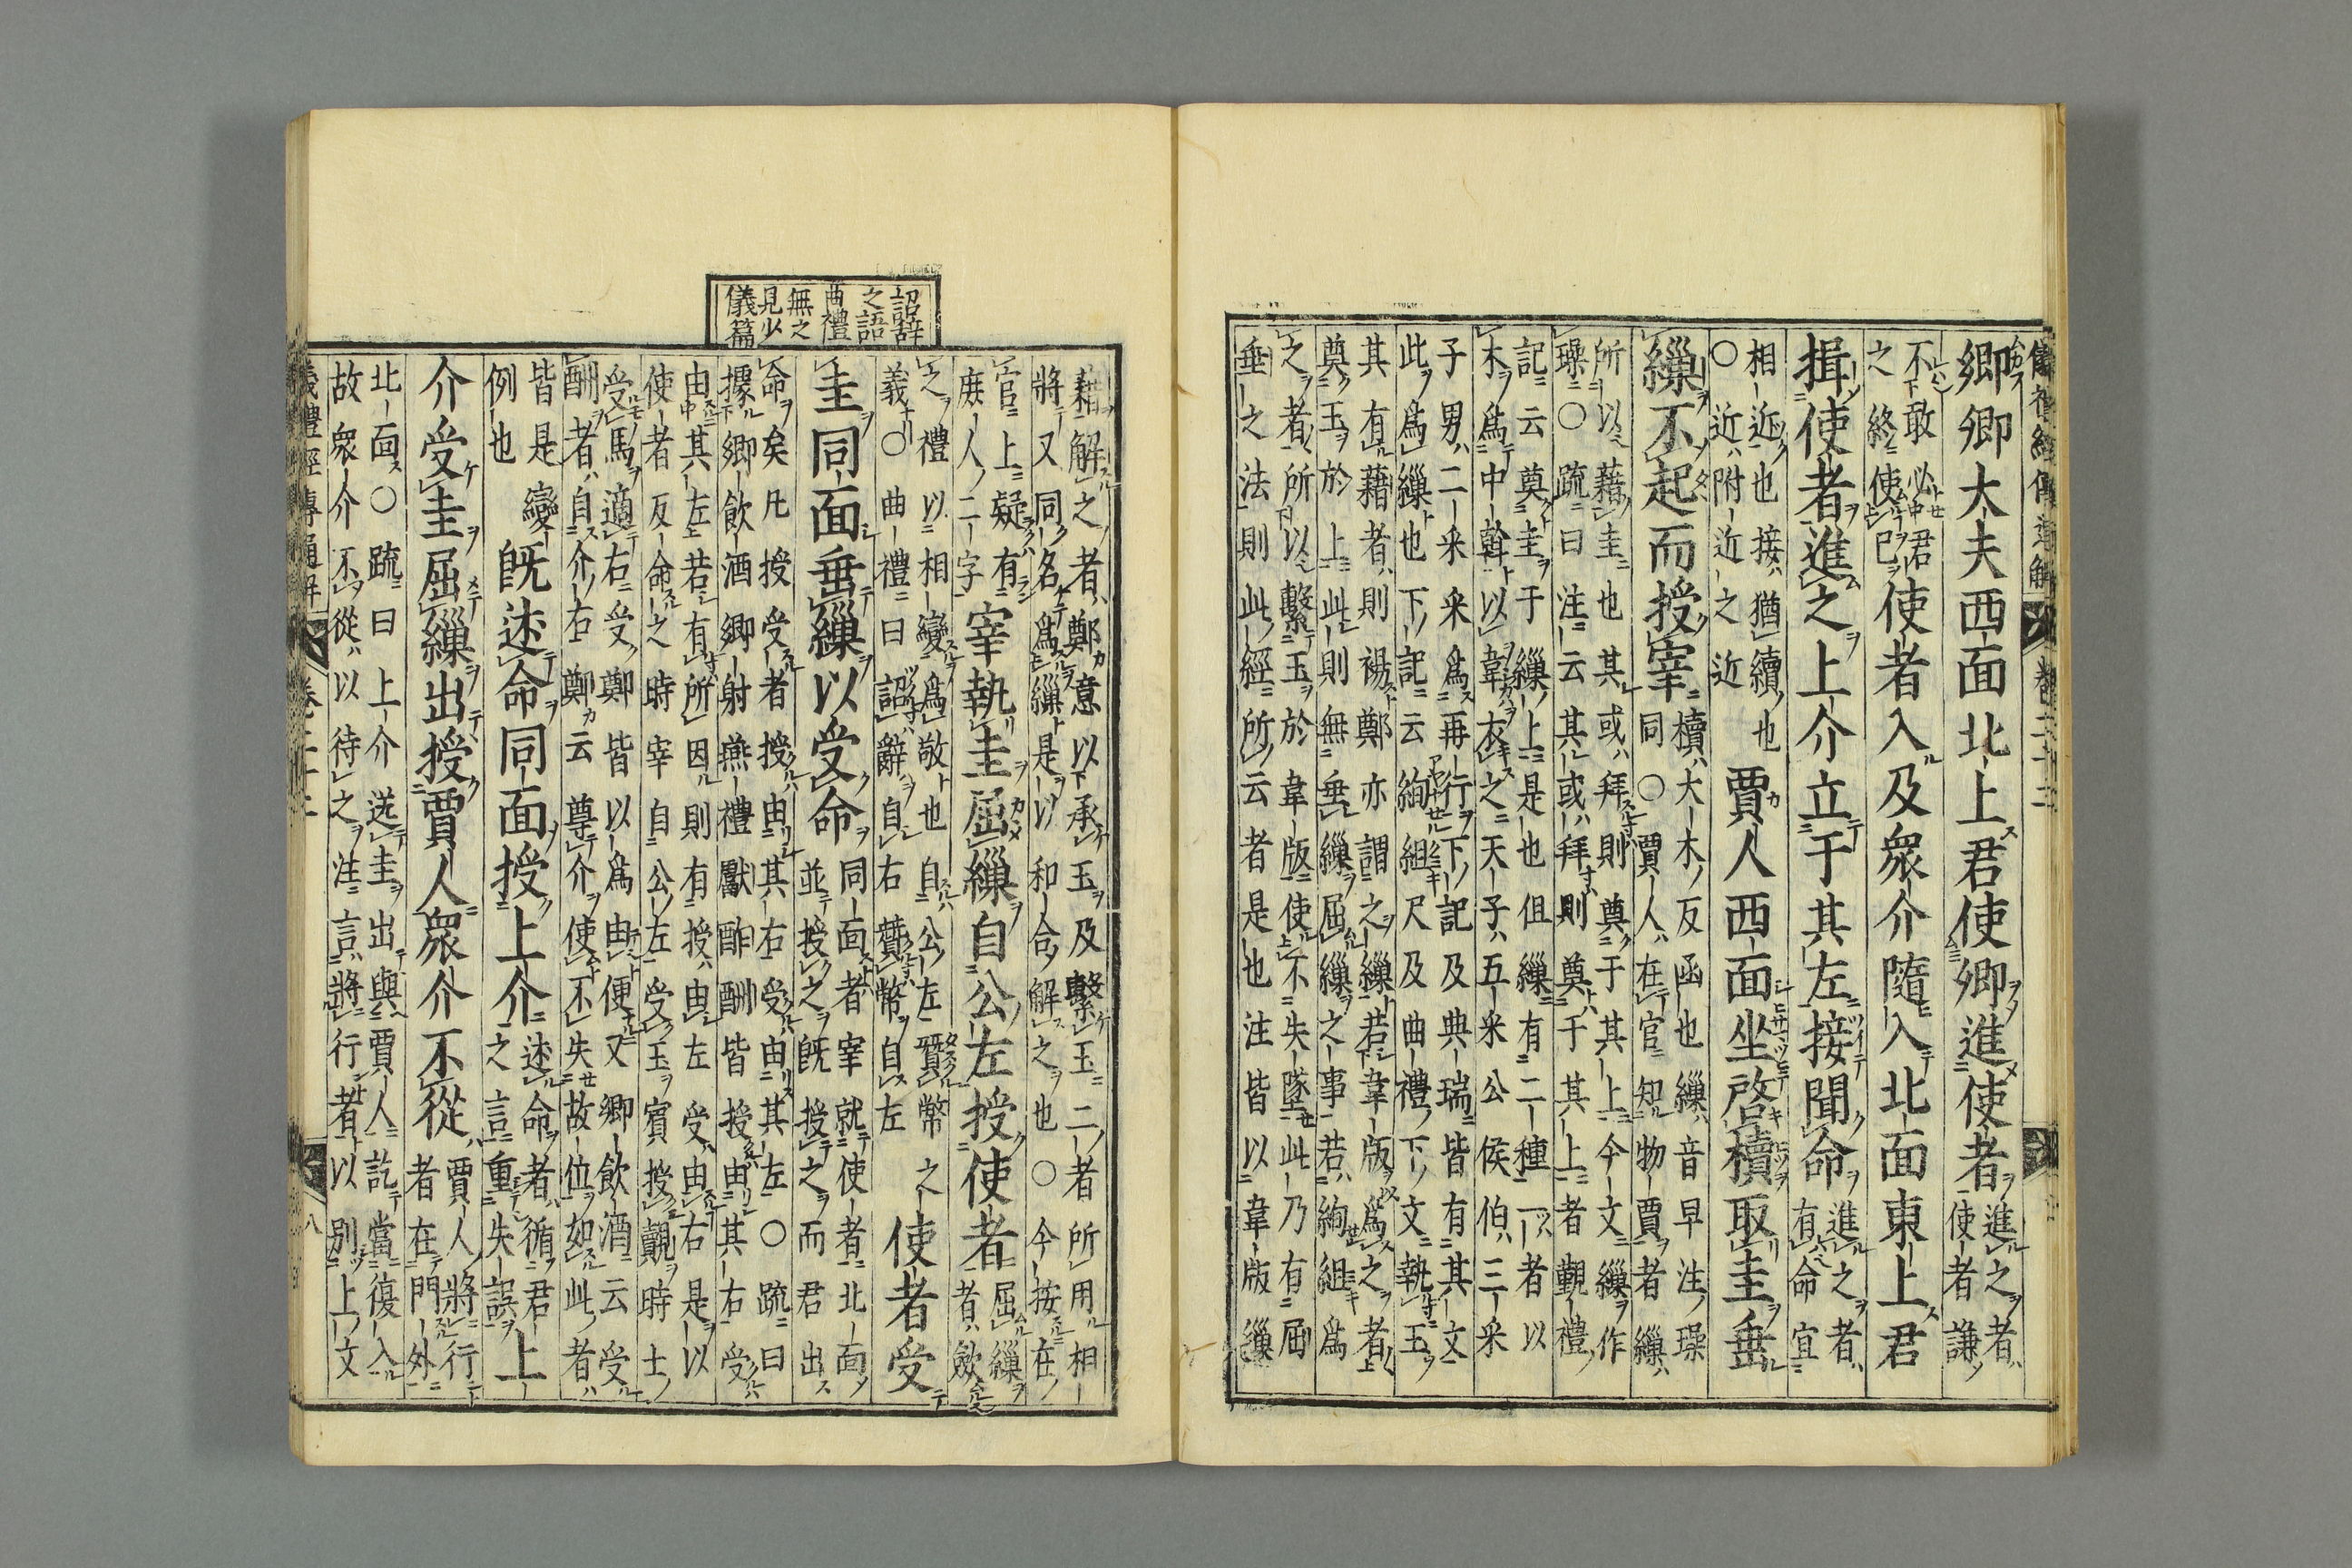 儀禮經傳通解 卷二十二
卿卿大夫西面北上君使卿進使者進之者
使者謙
不敢必君
之終使已使者入及衆介隨入北面東上君
揖使者進之上介立于其左接聞命進之者
有命宜
相近也接猶續也
○近附近之近賈人西面坐啓櫝取圭垂
繅不起而授宰櫝大木反函也繅音早注璪
同○賈人在官知物賈者繅
所以藉圭也其或拜則奠于其上今文繅作
璪○疏曰注云其或拜則奠于其上者覲禮
記云奠圭于繅上是也但繅有二種一者以
木爲中榦以韋衣之天子五采公侯伯三采
子男二采采爲再行下記及典瑞皆有其文
此爲繅也下記云絢組尺及曲禮下文執玉
其有藉者則裼鄭亦謂之繅若韋版爲之者
奠玉於上此則無垂繅屈繅之事若絢組爲
之者所以繫玉於韋版使不失墜此乃有屈
垂之法則此經所云者是也注皆以韋版繅
詔辭
之語
曲禮
無之
見少
儀篇
藉解之者鄭意以承玉及繫玉二者所用相
將又同名爲繅是以和合解之也○今按在
官上疑有
庶人二字宰執圭屈繅自公左授使者屈繅
者斂
之禮以相變爲敬也自公左贊幣之
義○曲禮曰詔辭自右贊幣自左使者受
圭同面垂繅以受命同面者宰就使者北面
並授之既授之而君出
命矣凡授受者授由其右受由其左○疏曰
據卿飲酒卿射燕禮獻酢酬皆授由其右受
由其左若有所因則有授由左受由右是以
使者反命之時宰自公左受玉賓授覿時士
受馬適右受鄭皆以爲由便又卿飲酒云受
酬者自介右鄭云尊介使不失故位如此者
皆是變
例也既述命同面授上介述命者循君
之言重失誤上
介受圭屈繅出授賈人衆介不從賈人將行
者在門外
北面○疏曰上介送圭出與賈人訖當復入
故衆介不從以待之注言將行者以別上文
儀禮經傳通解 卷二十二 八